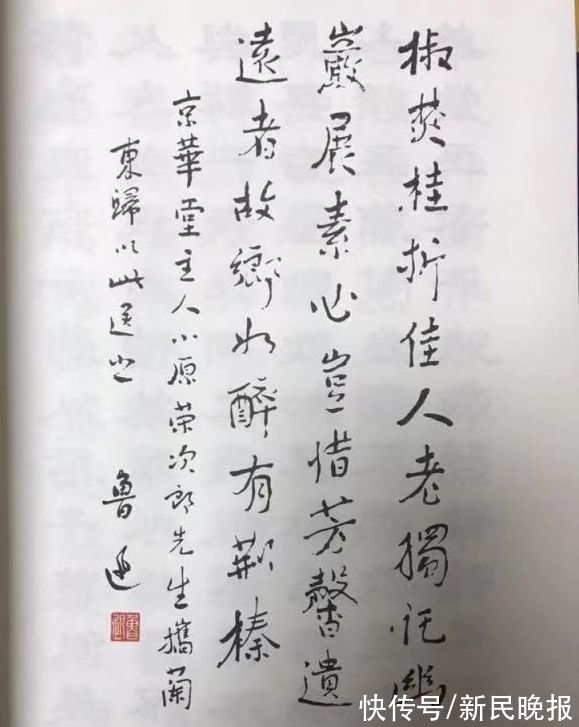 椒焚桂折佳人老獨託幽
巖展素心豈惜芳馨遺
遠者故鄉如醉有荊榛
京華堂主人小原荣次郎先生攜蘭
東歸以此送之
魯迅
魯迅
快传号/新民晚报